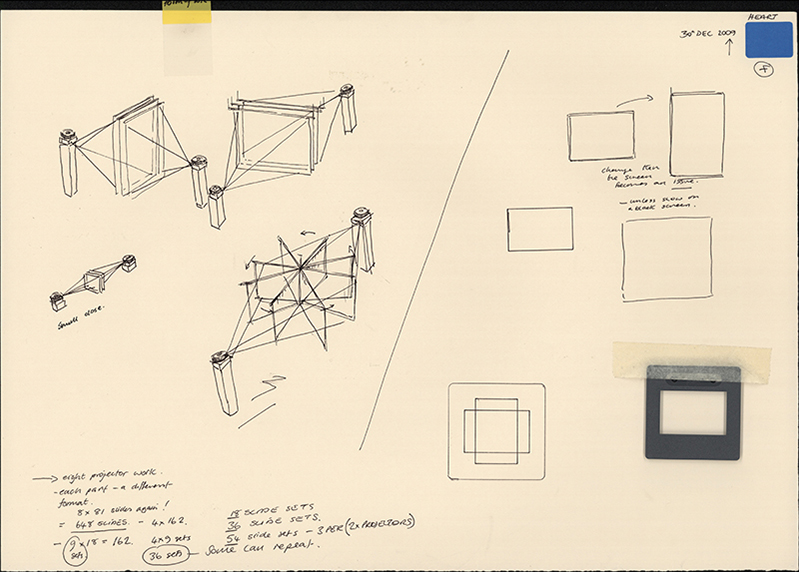 HEART
30th DEC 2009
F
change then
the screen
becomes an issue.
— unless show on
a black screen.
Small close.
→ eight projector work.
- each part - a different
format.
8 x 81 slides again!
= 648 SLIDES. - 4 x 162.
- 9 x 18 = 162. 4 x 9 sets
sets. 36 sets - Some can repeat.
18 SLIDE SETS
36 SLIDE SETS.
54 slide sets - 3 PER (2 x PROJECTORS)